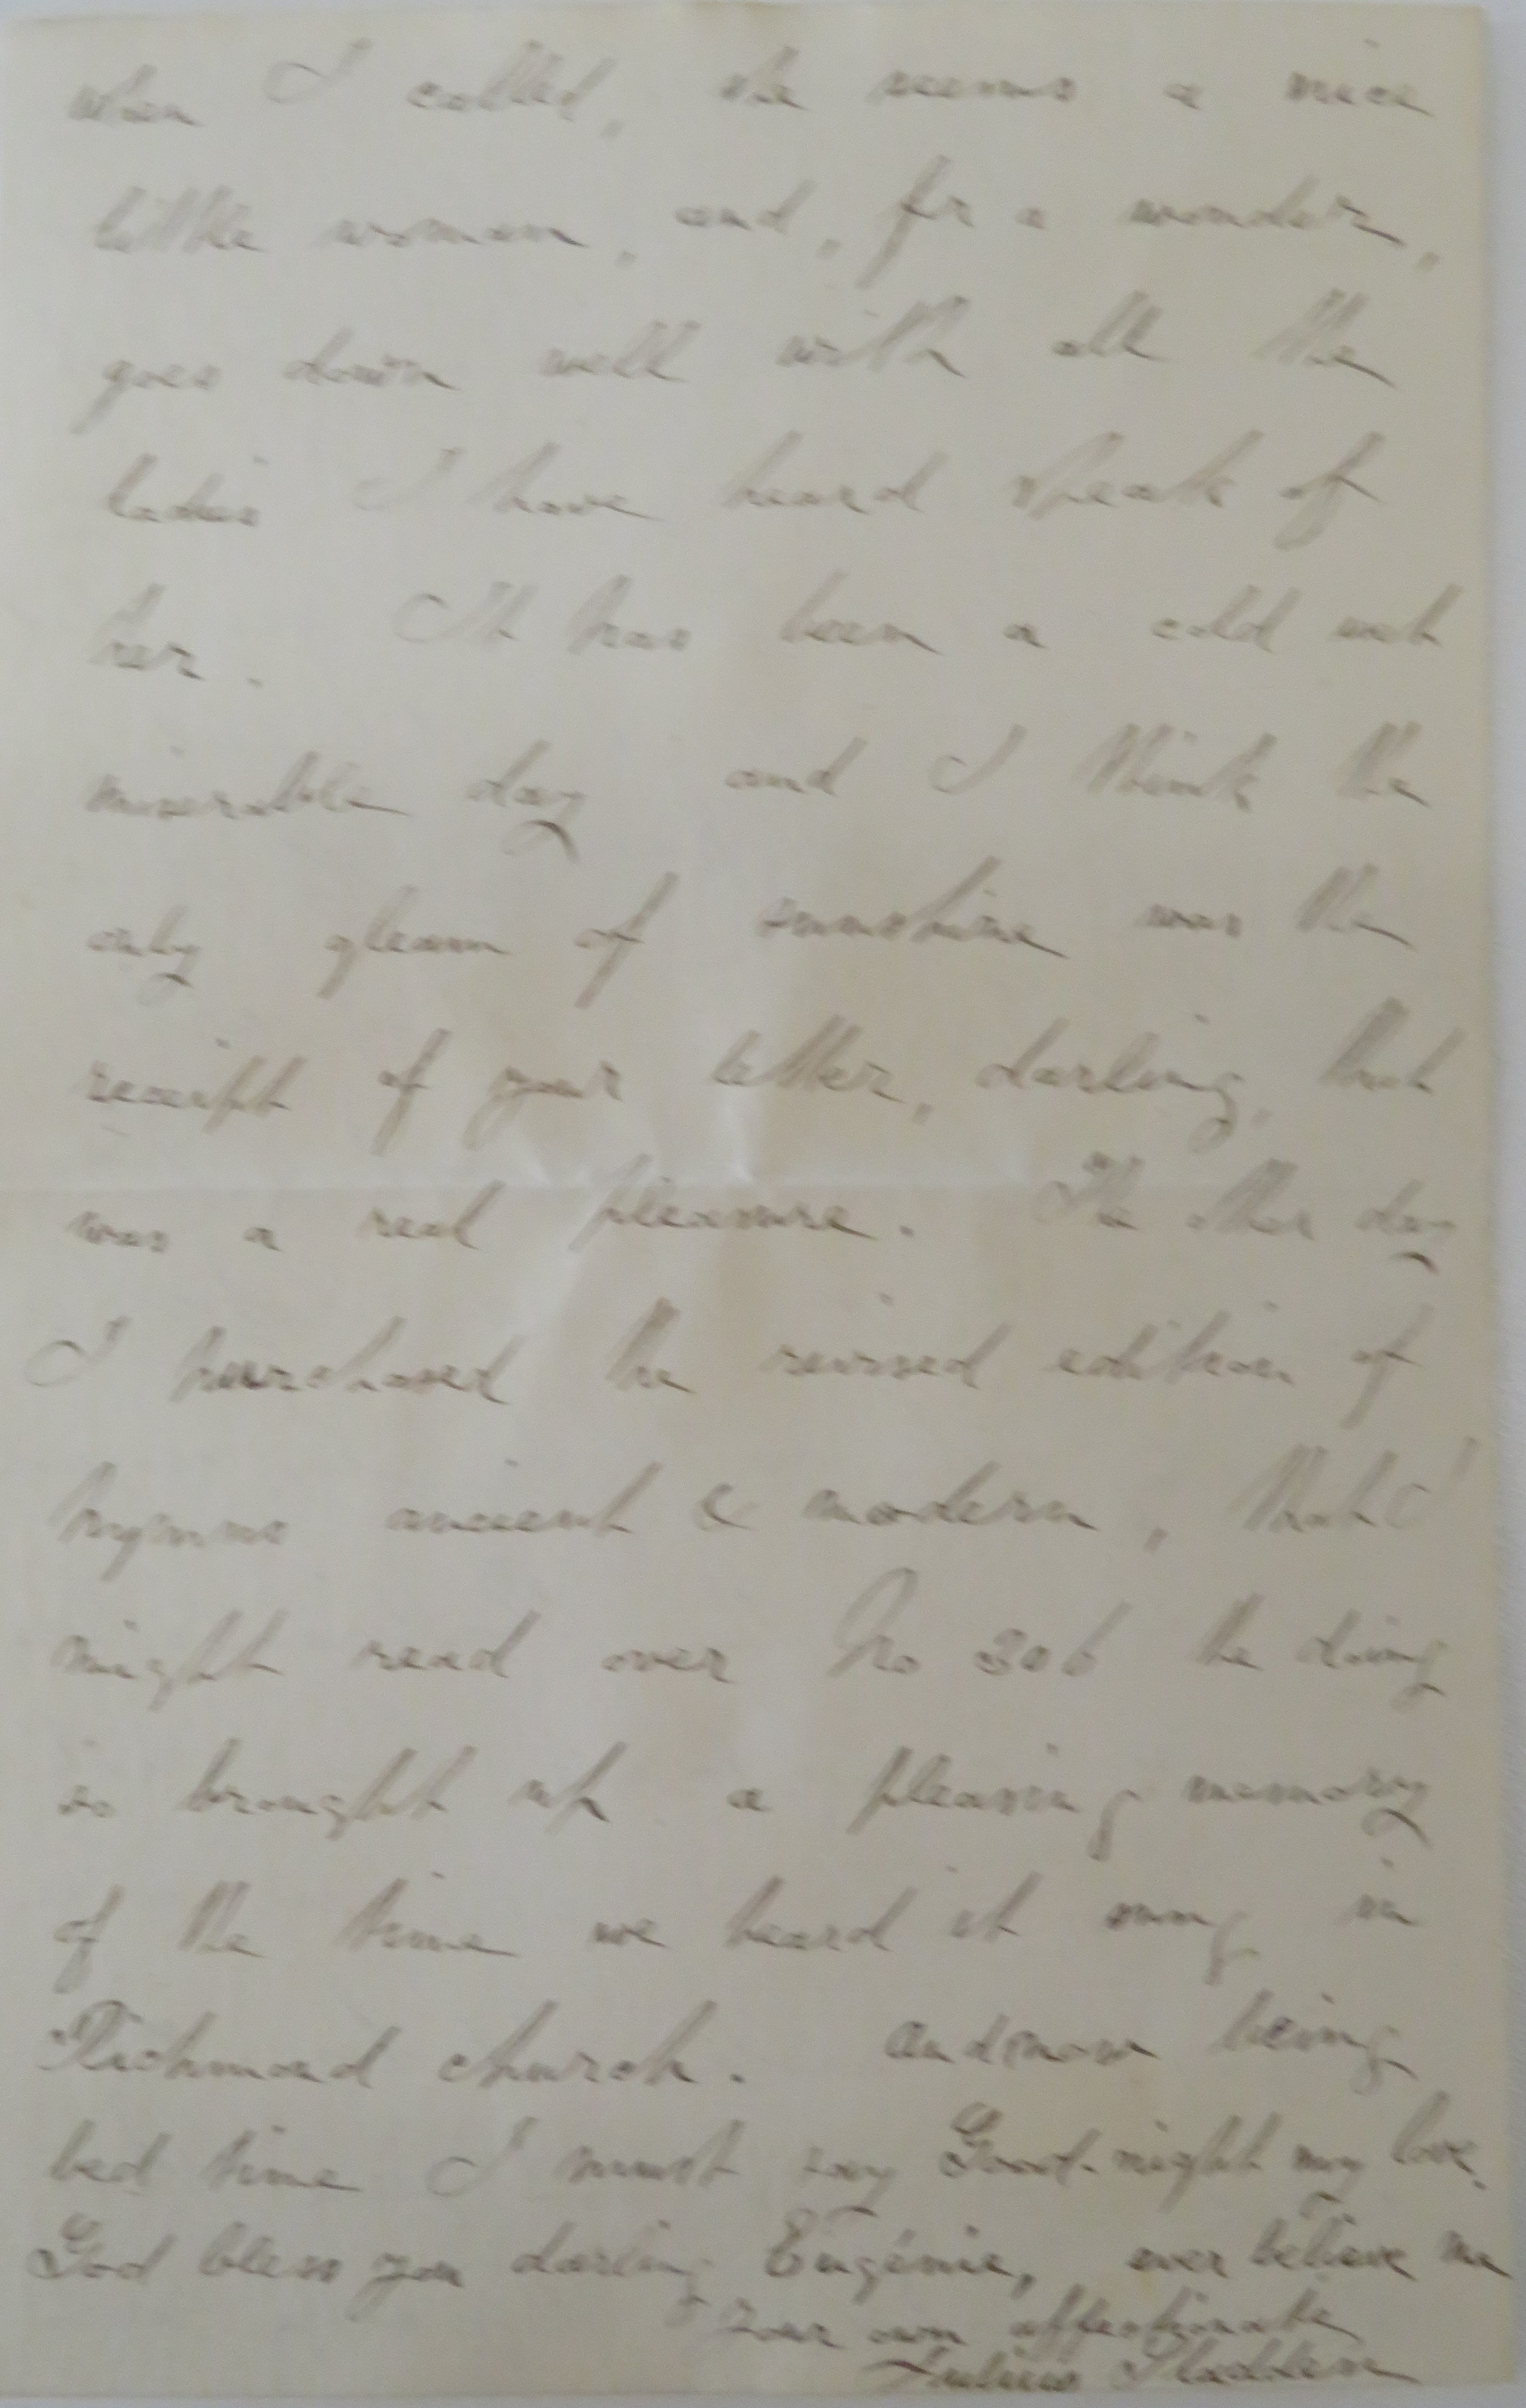 when I called, she seems a nice
little woman, and, for a wonder,
goes down well with all the
ladies I have heard speak of
her. It has been a cold wet
miserable day and I think the
only gleam of sunshine was the
receipt of your letter, darling, that
was a real pleasure. The other day
I purchased the revised edition of
hymns ancient & modern, that I
might read over No 306 the doing
so brought up a pleasing memory
of the time we heard it sung in
Richmond church. And now being
bed time I must say Good-night my love,
God bless you darling Eugénie, ever believe me
Your own affectionate
Julius Sladden